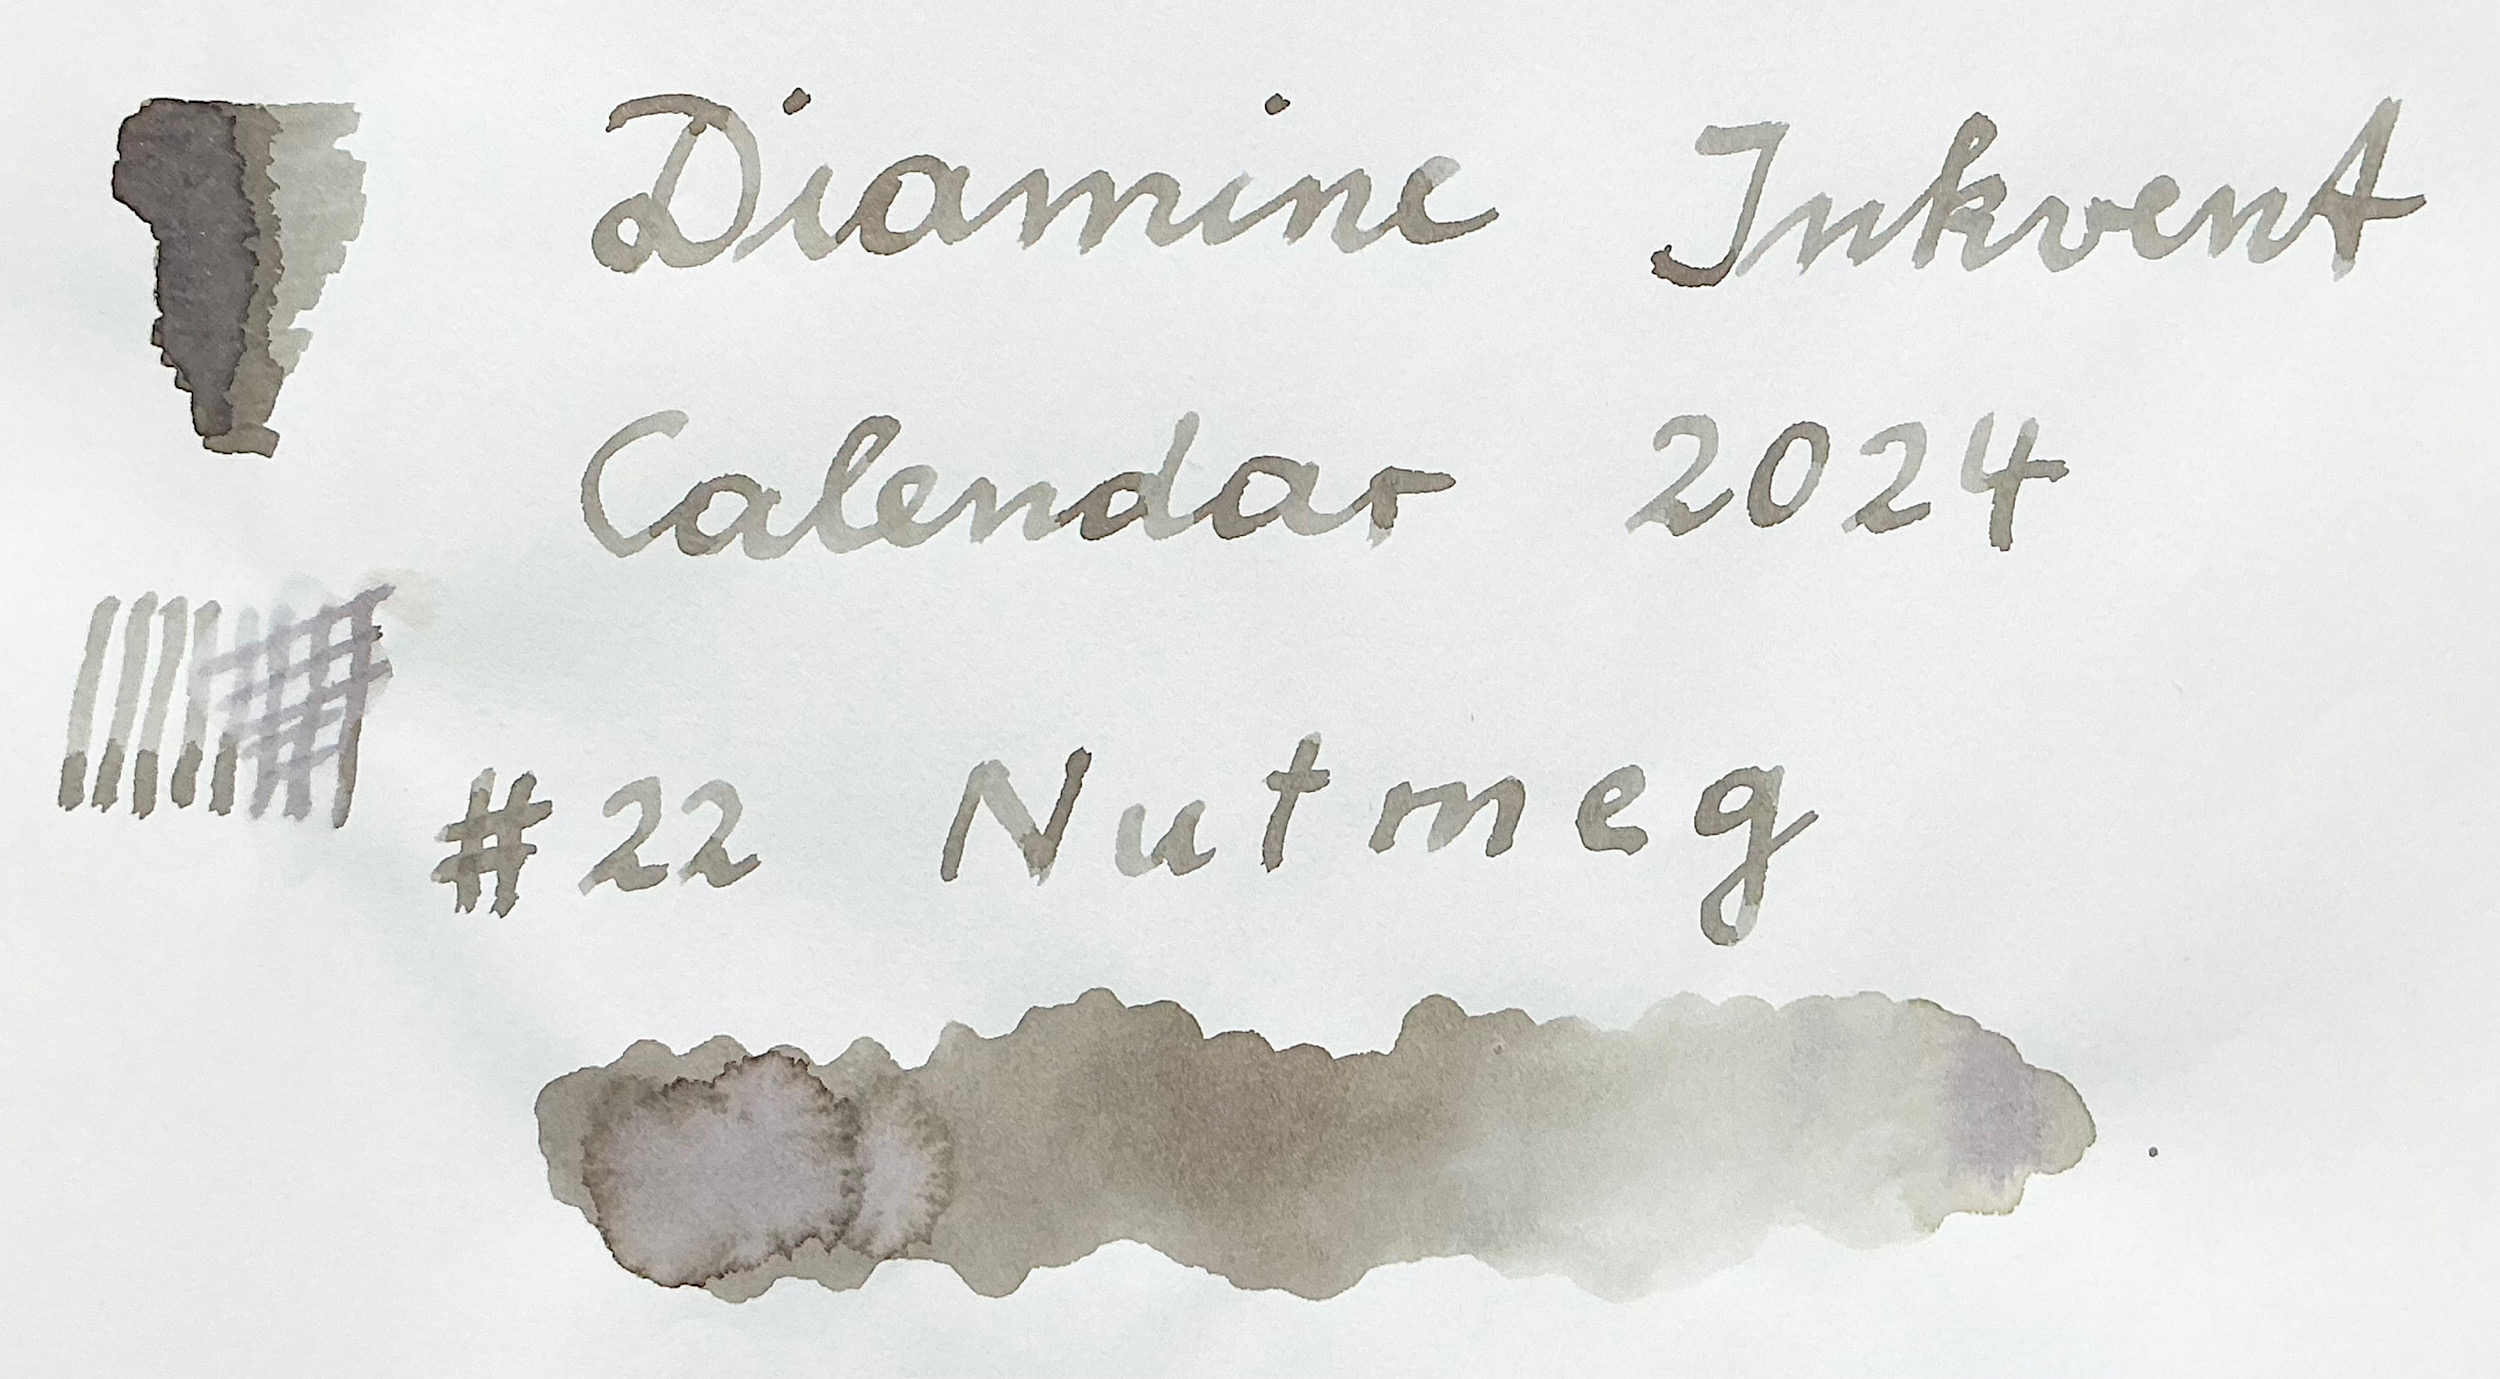 Diamine Inkvent
Calendar 2024
#22 Nutmeg